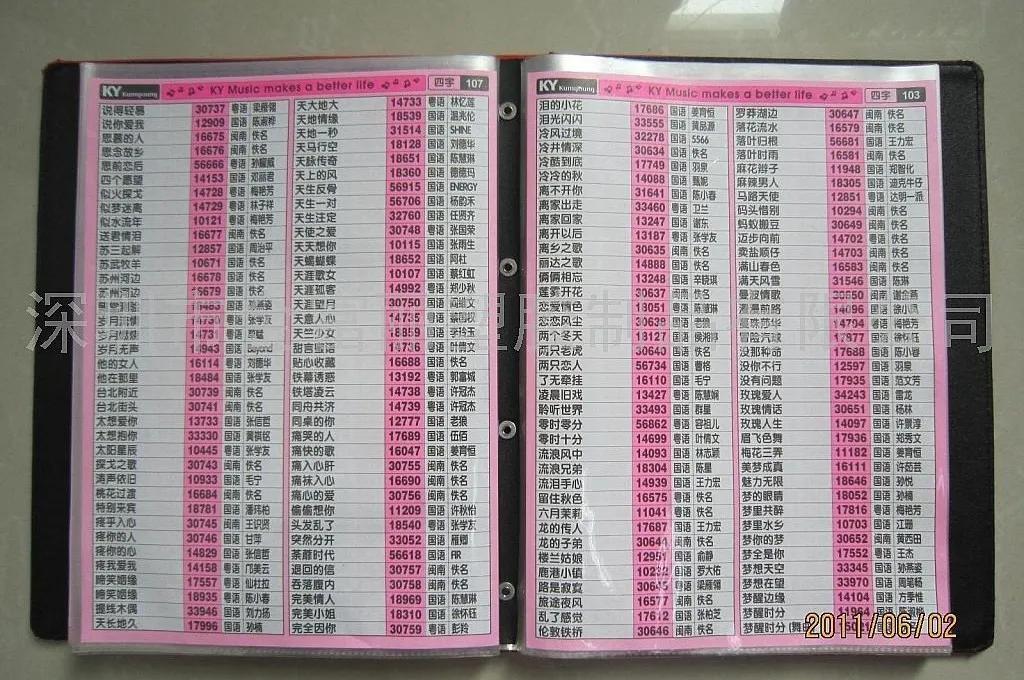 KY Kumyoung KY Music makes a better life 四字 107
说得轻易 30737 粤语 梁雁翎
说你爱我 12909 国语 陈淑桦
思慕的人 16675 闽南 佚名
思念故乡 16676 闽南 佚名
思前恋后 56666 粤语 孙耀威
四个愿望 14153 国语 邓丽君
似火探戈 14728 粤语 梅艳芳
似梦迷离 14729 粤语 林子祥
似水流年 10121 粤语 梅艳芳
送君情泪 16677 闽南 佚名
苏三起解 12857 国语 周治平
苏武牧羊 10671 国语 佚名
苏州河边 16678 国语 佚名
苏州河边 国语 佚名
孙燕姿
张学友
14731 粤语
岁月无声 14943 国语 Beyond
他的女人 16114 粤语 刘德华
他在那里 18484 国语 张学友
台北附近 30739 闽南 佚名
台北街头 30741 闽南 佚名
太想爱你 13733 国语 张信哲
太想抱你 33330 国语 黄祺铭
太阳星辰 10445 粤语 张学友
探戈之歌 30743 闽南 佚名
涛声依旧 10933 国语 毛宁
桃花过渡 16684 闽南 佚名
特别来宾 18781 国语 潘玮柏
疼乎入心 30745 闽南 王识贤
疼你的人 30746 国语 甘萍
疼你的心 14829 国语 张信哲
疼我爱我 14158 粤语 邝美云
啼笑姻缘 17557 粤语 仙杜拉
啼笑姻缘 18935 粤语 陈小春
提线木偶 33946 国语 刘力扬
天长地久 17996 国语 孙楠
天大地大 14733 粤语 林忆莲
天地情缘 18539 国语 温兆伦
天地一秒 31514 国语 SHINE
天马行空 18128 国语 刘德华
天脉传奇 18651 国语 陈慧琳
天上的风 18360 国语 德德玛
天生反骨 56915 国语 ENERGY
天生一对 56706 国语 杨韵禾
天生注定 32760 国语 任贤齐
天使之爱 30748 粤语 张国荣
天天想你 10115 国语 张雨生
天蝎蝴蝶 18652 国语 阿杜
天涯歌女 10107 国语 蔡幻虹
天涯孤客 14992 粤语 郑少秋
天涯望月 30750 闽南
天意人心 14735 粤语 蔡国权
天竺少女 18859 国语 李玲玉
甜言蜜语 14736 粤语 叶倩文
贴心收藏 16688 闽南 佚名
铁幕诱惑 13192 粤语 郭富城
铁塔凌云 14738 粤语 许冠杰
同舟共济 14739 粤语 许冠杰
同桌的你 12777 国语 老狼
痛哭的人 17689 国语 伍佰
痛快的歌 16047 国语 姜育恒
痛入心肝 30755 闽南 佚名
痛袜入心 16690 闽南 佚名
痛心的爱 30756 闽南 佚名
偷偷想你 11209 国语 许秋怡
头发乱了 18540 粤语 张学友
突然分开 33052 国语 雁卿
荼靡时代 56618 国语 AIR
退回的信 30757 闽南 佚名
吞落腹内 30758 闽南 佚名
完美情人 18969 国语 陈慧琳
完美小姐 18310 国语 徐怀钰
完全因你 30759 粤语 彭羚
KY Kumyoung KY Music makes a better life 四字 103
泪的小花 17686 国语 姜育恒
泪光闪闪 33555 国语 黄品源
冷风过境 32278 国语 5566
冷井情深 30634 国语 佚名
冷酷到底 17749 国语 羽泉
冷冷的秋 14088 国语 甄妮
离不开你 31641 国语 陈小春
离家出走 33460 粤语 卫兰
离家回家 13247 国语 谢东
离开以后 13187 粤语 张学友
离乡之歌 30635 闽南 佚名
丽达之歌 14888 国语 佚名
俩俩相忘 13248 国语 辛晓琪
莲雾开花 30637 闽南 佚名
恋爱情色 18051 粤语 陈慧琳
恋恋风尘 30638 国语 老狼
两个冬天 18127 国语 侯湘婷
两只老虎 30640 国语 佚名
两只恋人 56734 国语 曹格
了无牵挂 16110 国语 毛宁
凌晨旧戏 13427 粤语 陈慧娴
聆听世界 33493 国语 群星
零时零分 56862 粤语 容祖儿
零时十分 14699 粤语 叶倩文
流浪风中 14093 国语 林志颖
流浪兄弟 18304 国语 陈星
流泪手心 14939 国语 王力宏
留住秋色 16575 粤语 佚名
六月茉莉 11041 粤语 佚名
龙的传人 17687 国语 王力宏
龙的子弟 闽南 佚名
楼兰姑娘 国语 俞静
鹿港小镇 国语 罗大佑
路是寂寞 粤语 梁雁翎
旅途夜风 16577 闽南 佚名
乱了感觉 17612 国语 张柏芝
伦敦铁桥 30646 闽南 佚名
罗莽湖边 30647 闽南 佚名
落花流水 16579 闽南 佚名
落叶归根 56681 国语 王力宏
落叶时雨 16581 闽南 佚名
麻花辫子 11948 国语 郑智化
麻辣男人 18305 国语 迪克牛仔
马路天使 12851 粤语 达明一派
码头惜别 10294 闽南 佚名
蚂蚁搬豆 30649 闽南 佚名
迈步向前 14702 粤语 佚名
卖盐顺仔 14703 闽南 佚名
满山春色 16583 闽南 佚名
满天风雪 31546 国语 陈琳
曼波情歌 30650 闽南 谢金燕
漫漫前路 14096 国语 徐小凤
14794 粤语 梅艳芳
冒险汽球 17877 国语 徐怀钰
没那种命 17688 国语 陈小春
没你不行 12597 国语 羽泉
没有问题 17935 国语 范文芳
玫瑰爱人 34243 国语 雷龙
玫瑰情话 30651 国语 杨林
玫瑰人生 14097 国语 许景淳
眉飞色舞 17936 国语 郑秀文
梅花三弄 11182 国语 姜育恒
美梦成真 16111 国语 许茹芸
魅力无限 18646 国语 孙悦
梦的眼睛 18052 国语 孙楠
梦里共醉 17816 粤语 梅艳芳
梦里水乡 10703 国语 江珊
梦你的梦 30652 闽南 黄西田
梦全是你 17552 粤语 王杰
梦想天空 33345 国语 孙燕姿
梦想在望 33970 国语 周笔畅
梦醒边缘 14104 国语 方季惟
梦醒时分 11964 国语 陈淑桦
梦醒时分
深圳 塑胶制 限 司
2011/06/02